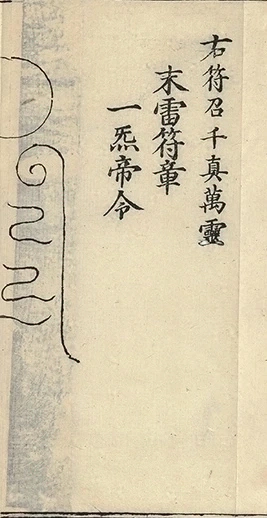 右符召千真萬靈
末雷符章
一炁帝令